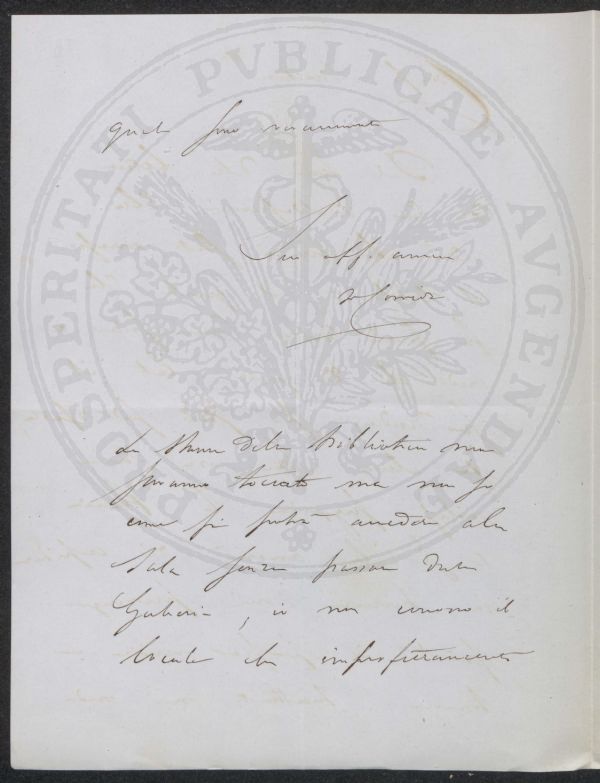 PROSPERITATI PVBLICAE AVGENDAE
quale sono veramente
Suo aff. amico
Le stanze della Biblioteca non
saranno toccate ma non so
come si potrà accedere alla
Sala senza passare dalla
Galleria, io non conosco il
locale che imperfettamente